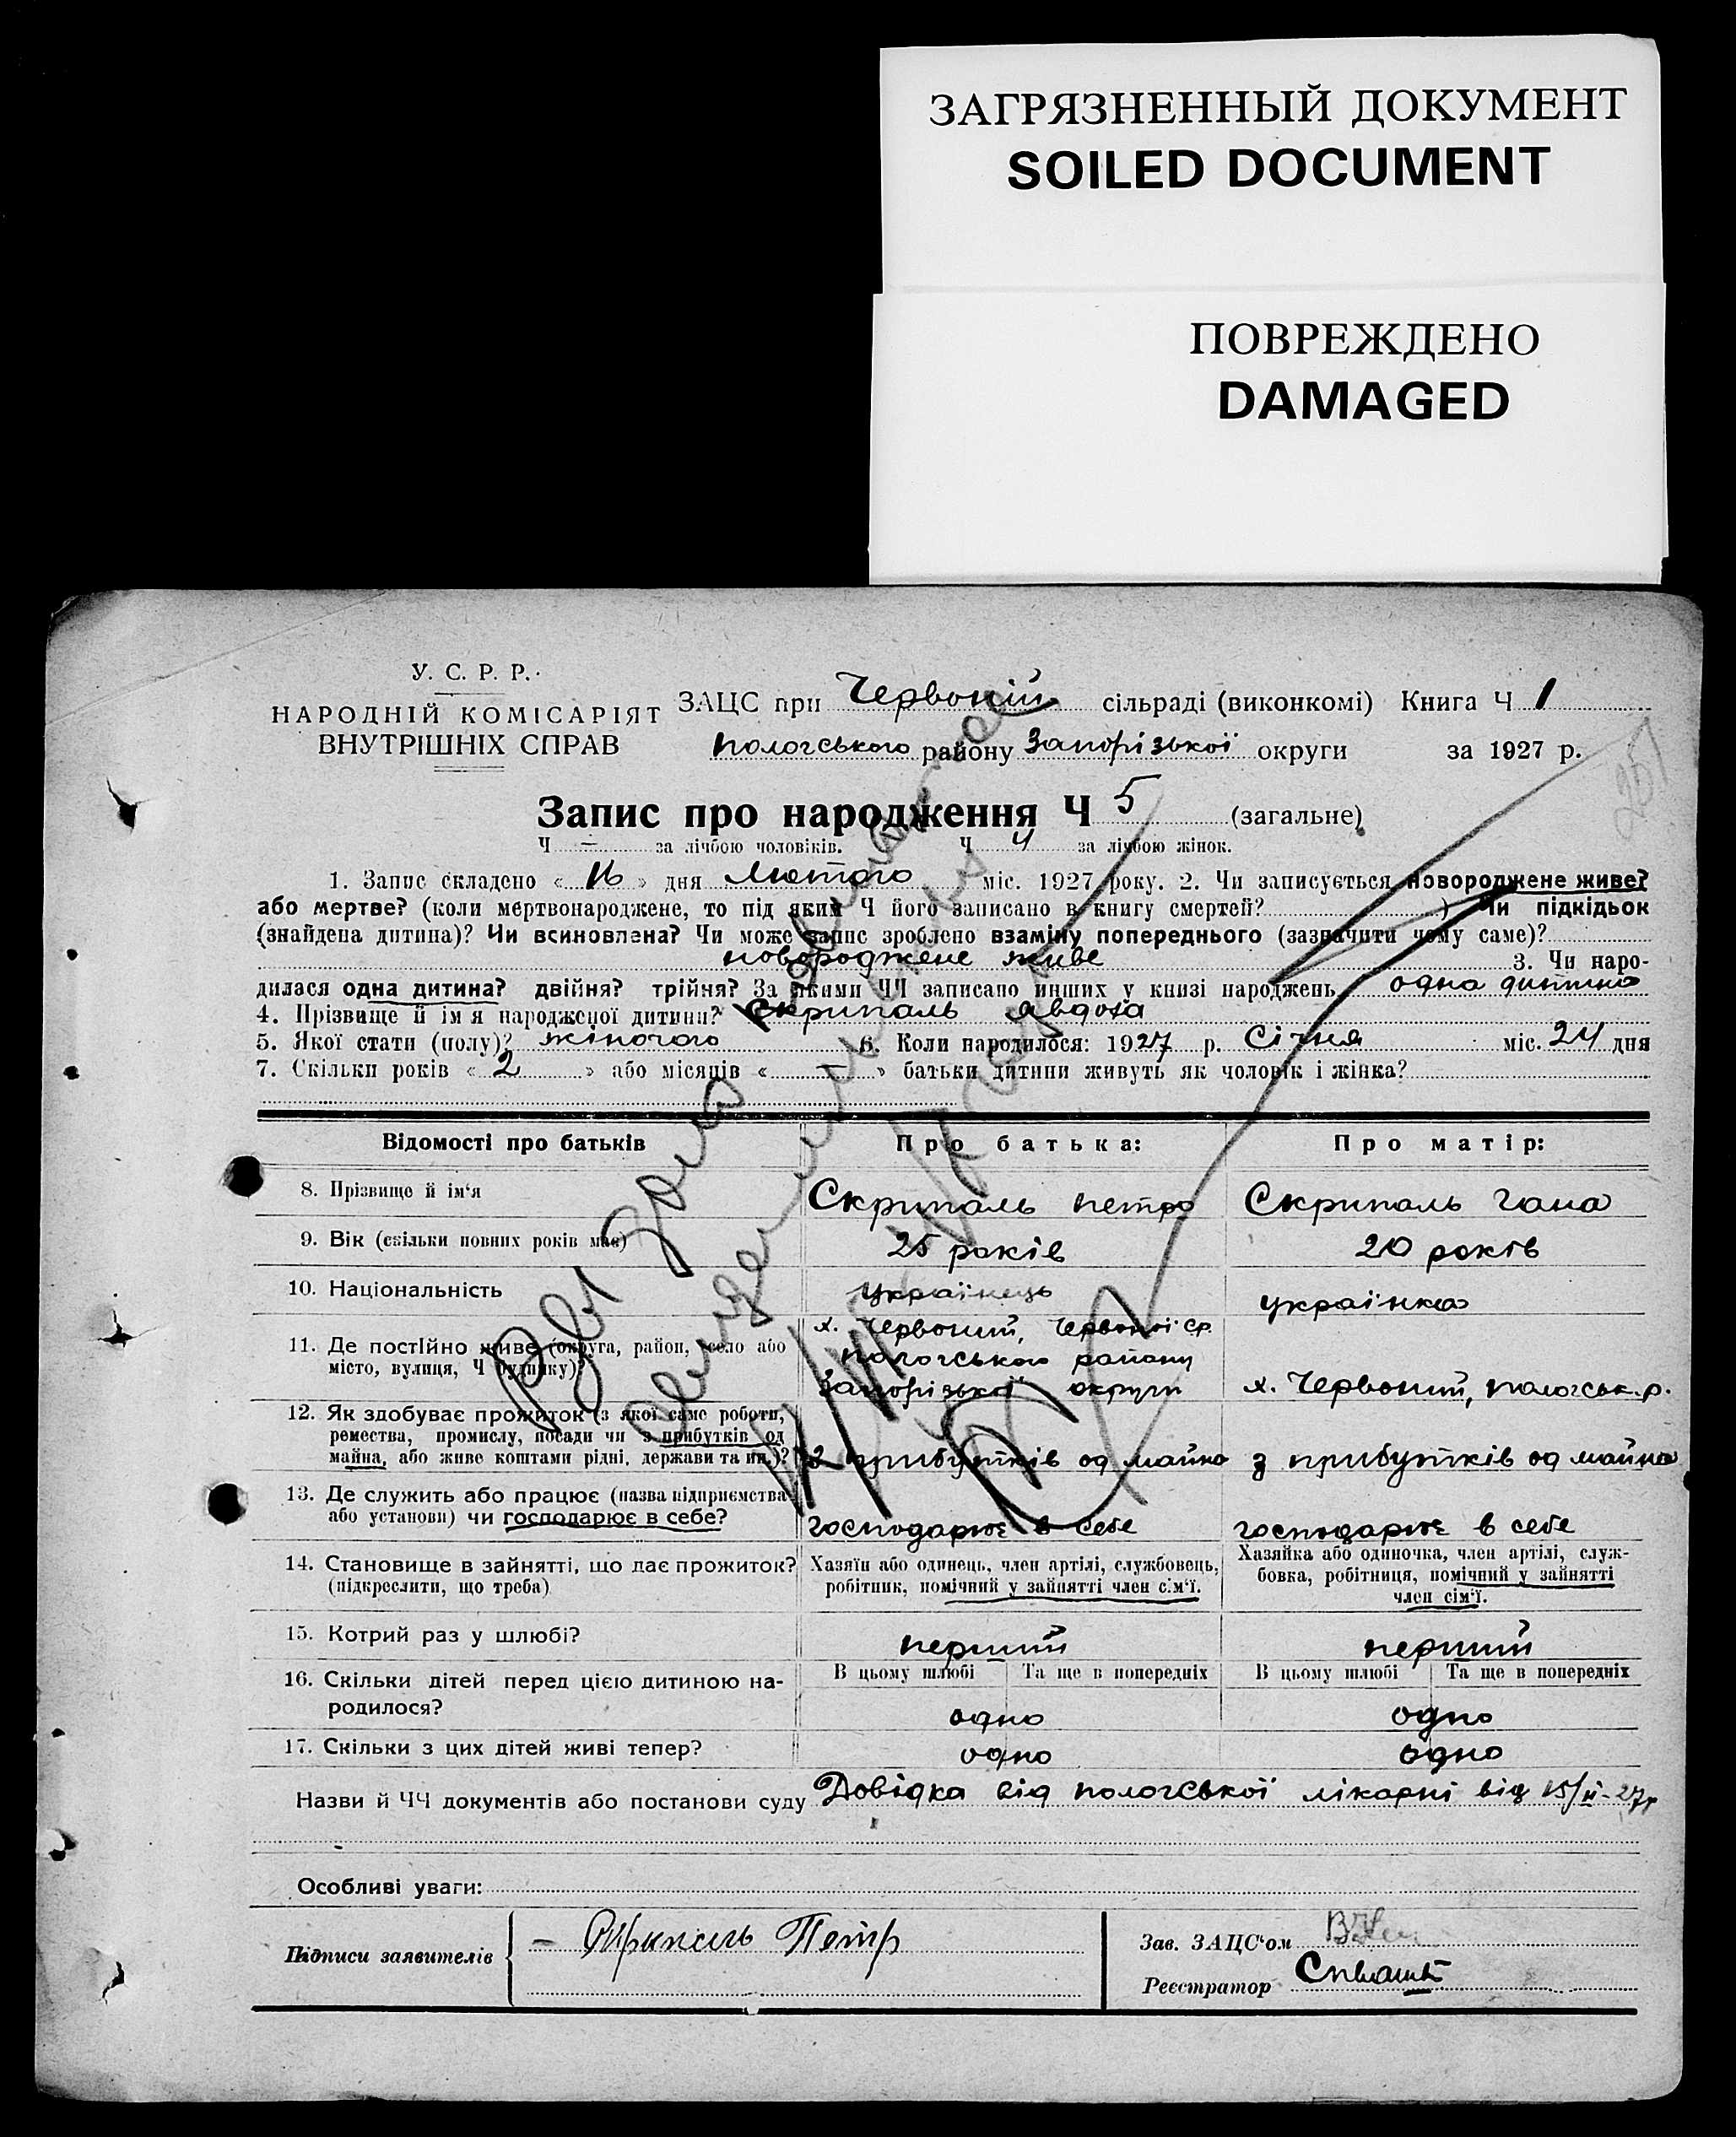 ЗАГРЯЗНЕННЫЙ ДОКУМЕНТ
SOILED DOCUMENT
ПОВРЕЖДЕНО
DAMAGED
У. С. Р. Р.
НАРОДНІЙ КОМІСАРІЯТ
ВНУТРІШНІХ СПРАВ
ЗАЦС при Червоній сільраді (виконкомі) Книга Ч 1
пологського району Запорізької округи за 1927 р.
251
Запис про народження Ч 5 (загальне)
Ч — за лічбою чоловіків. Ч 4 за лічбою жінок.
1. Запис складено « 16 » дня Лютого міс. 1927 року. 2. Чи записується новороджене живе?
або мертве? (коли мертвонароджене, то під яким Ч його записано в книгу смертей? ) Чи підкідьок
(знайдена дитина)? Чи всиновлена? Чи може запис зроблено взаміну попереднього (зазначити чому саме)?
новороджене живе 3. Чи наро-
дилася одна дитина? двійня? трійня? За якими ЧЧ записано инших у книзі народжень одна дитина
4. Прізвище й ім я народженої дитини? Скрипаль Явдоха
5. Якої стати (полу)? жіночого 6. Коли народилося: 1927 р. Січня міс. 24 дня
7. Скільки років « 2 » або місяців « — » батьки дитини живуть як чоловік і жінка?
Відомості про батьків Про батька: Про матір:
8. Прізвище й ім‘я Скрипаль петро Скрипаль Гана
9. Вік (скільки повних років має) 25 років 20 років
10. Національність українець українка
11. Де постійно живе (округа, район, село або
місто, вулиця, Ч будинку)?
х. Червоний, Червоної ср.
пологського району
Запорізької округи х. Червоний, пологськ. р.
12. Як здобуває прожиток (з якої саме роботи,
ремества, промислу, посади чи з прибутків од
майна, або живе коштами рідні, держави та ин.)? з прибутків од майна з прибутків од майна
13. Де служить або працює (назва підприємства
або установи) чи господарює в себе? господарює в себе господарює в себе
14. Становище в зайнятті, що дає прожиток?
(підкреслити, що треба)
Хазяїн або одинець, член артілі, службовець,
робітник, помічний у зайнятті член сім‘ї.
Хазяйка або одиночка, член артілі, служ-
бовка, робітниця, помічний у зайнятті
член сім‘ї.
15. Котрий раз у шлюбі? перший перший
16. Скільки дітей перед цією дитиною на-
родилося?
В цьому шлюбі Та ще в попередніх В цьому шлюбі Та ще в попередніх
одно одно
17. Скільки з цих дітей живі тепер? одно одно
Назви й ЧЧ документів або постанови суду Довідка від пологської лікарні від 15/II-27р
Особливі уваги:
Підписи заявителів — Скрипаль Петр
Зав. ЗАЦС‘ом
Реєстратор